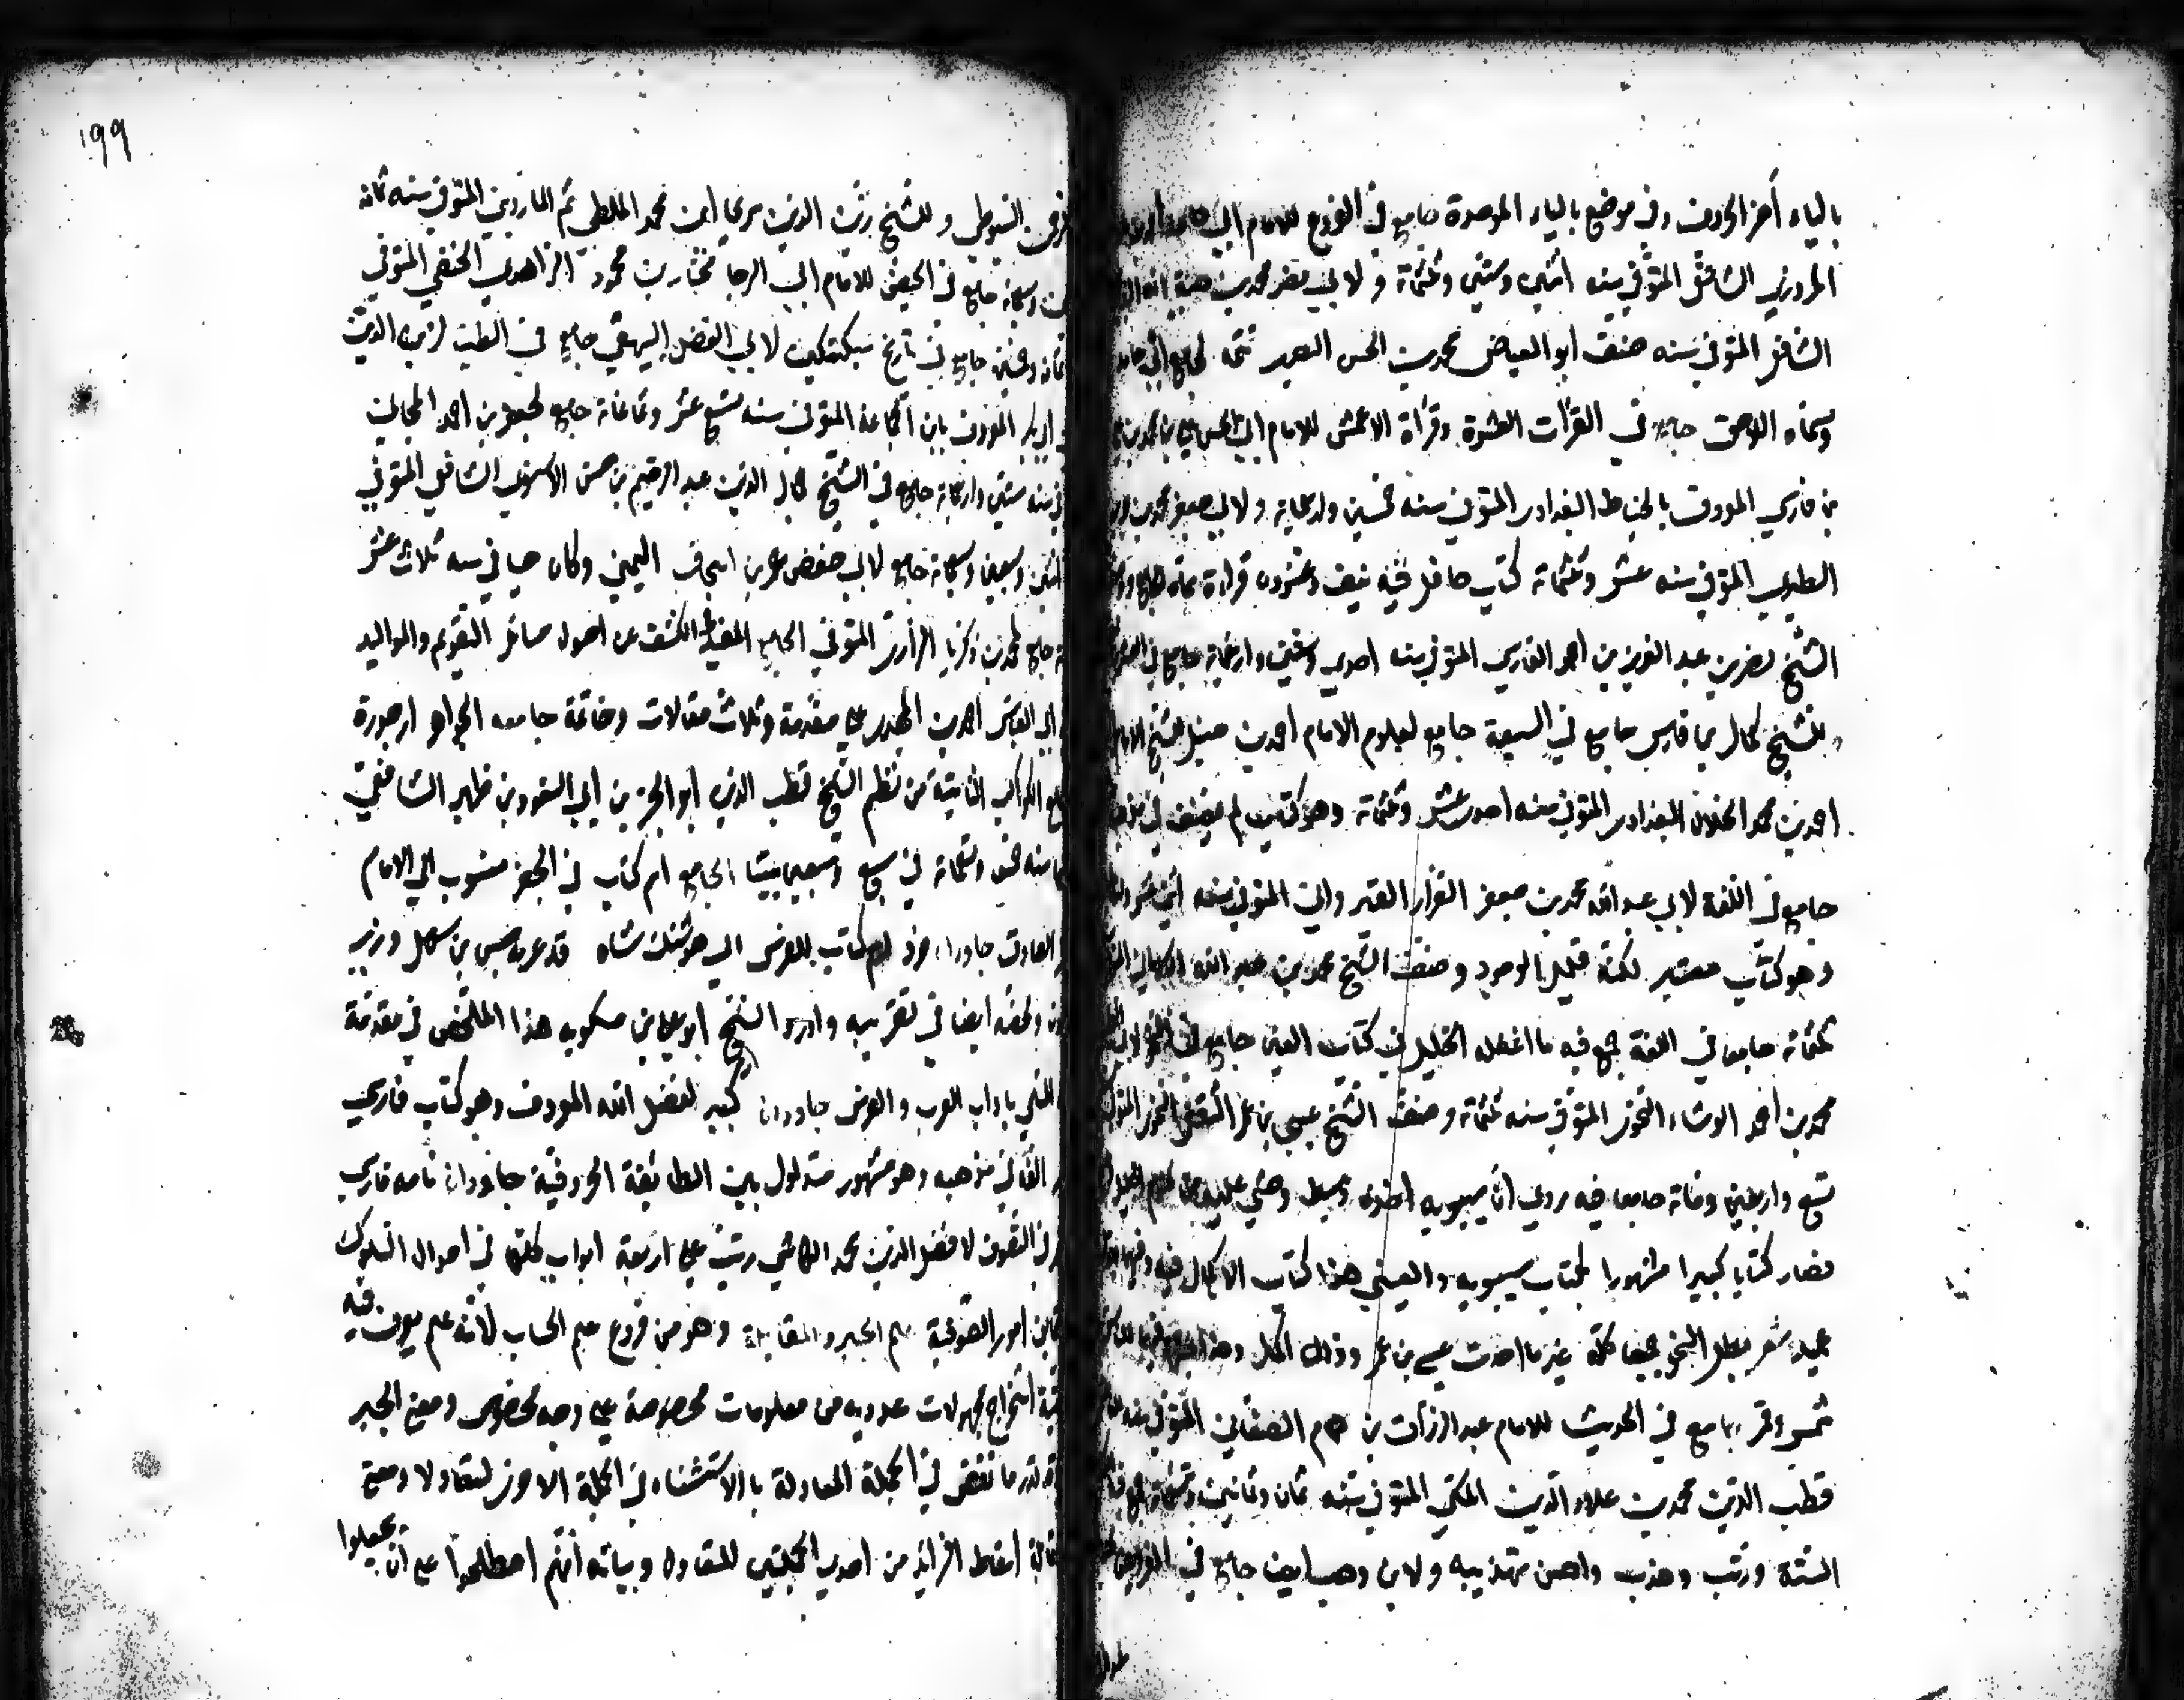 بالياء آخر الحروف وفي موضع بالباء الموحدة جامع في الفروع للامام ابي حامد احمد
المروزي الشافعي المتوفي سنه اثنين وستين وثلثمائة ولابي نصر محمد بن هبة الله
الشافعي المتوفي سنه صنف ابو الفياض محمد بن الحسن البصري تتمة لجامع ابي حامد
وسماه اللاحق جامع في القرآت العشرة وقرأة الاعمش للامام ابي الحسن علي بن محمد بن
بن فارس المعروف بالخياط البغدادي المتوفي سنه خمسين واربعماية ولابي جعفر محمد بن
الطبري المتوفي سنه عشر وثلثماية كتاب حافل فيه نيف وعشرون قراءة سماه الجامع
الشيخ نصر بن عبد العزيز بن احمد الفارسي المتوفي سنه احدى وستين واربعماية جامع في
وللشيخ كمال بن فارس جامع في السبعة جامع لعلوم الامام احمد بن حنبل للشيخ الامام
احمد بن محمد الخلال البغدادي المتوفي سنه احدى عشر وثلثماية وهو كتاب لم يصنف في مذهبه
جامع في اللغة لابي عبد الله محمد بن جعفر القزاز القيرواني المتوفي سنه اثني عشر
وهو كتاب معتبر لكنه قليل الوجود وصنف الشيخ محمد بن عبد الله الكرماني
ثلثماية جامعا في اللغة جمع فيه ما اغفله الخليل في كتاب العين جامع في النحو لابي
محمد بن احمد الوشاء النحوي المتوفي سنه ثلثماية وصنف الشيخ عيسى بن عمر الثقفي النحوي المتوفي
تسع واربعين وماية جامعا فيه روي ان سيبويه اخذه وبسط وحشي عليه من كلام الخليل
فصار كتابا كبيرا مشهورا بكتاب سيبويه والعيسى هذا كتاب الاكمال فيه وفيهما
عميد شعر بطل النحو جميعا كله غير ما احدث عيسى بن عمر وذاك اكمال وهذا جامع فهما للناس
شمس وقمر جامع في الحديث للامام عبد الرزاق بن همام الصنعاني المتوفي سنه
قطب الدين محمد بن علاء الدين المكي المتوفي سنه ثمان وثمانين وتسعماية جمع فيه
الستة ورتب وهذب واحسن تهذيبه ولابن وهب ايضا جامع في
١٩٩
السيوطي وللشيخ زين الدين سريجا ابن محمد الملطي ثم المارديني المتوفي سنه ثمان
وسبعماية جامع في الحيض للامام ابي الرجا مختار بن محمود الزاهدي الحنفي المتوفي
ثمان وخمسين جامع في تاريخ سبكتكين لابي الفضل البيهقي جامع في الطب لزين الدين
ابي بكر المعروف بابن الجماعة المتوفي سنه تسع عشر وثمانماية جامع لجعفر بن احمد
سنه ستين واربعماية جامع في الشيخ كمال الدين عبد الرحيم بن حسن الاسنوي الشافعي المتوفي
اثنين وسبعين وسبعماية جامع لابي حفص عمر بن اسحاق اليمني وكان حيا في سنه ثلاث عشر
جامع لمحمد بن زكريا الرازي المتوفي الجامع المفيد في الكشف عن اصول مسائل التقويم والمواليد
ابي العباس احمد بن المجدي علي مقدمة وثلاث مقالات وخاتمة جامعه الجواهر ارجوزة
الكواكب الثابتة من نظم الشيخ قطب الدين ابو الخير بن ابي السعود بن ظهير الشافعي
سنه خمس وتسعماية في سبع وسبعين بيتا الجامع ام كتاب في الجفر منسوب الي الامام
الصادق جاودان خرد اسم كتاب للفرس الي هوشنك شاه قد عربه حسن بن سهل وزير
ولخصه ايضا في تقريبه واورد الشيخ ابو علي بن مسكويه هذا الملخص في مقدمة
المسمي باداب العرب والفرس جاودان كبير لفضل الله المعروف وهو كتاب فارسي
الفه في مذهبه وهو مشهور متداول بين الطائفة الحروفية جاودان نامه فارسي
في التصوف لافضل الدين محمد الكاشي رتب علي اربعة ابواب كلها في احوال السلوك
امور الصوفية علم الجبر والمقابلة وهو من فروع علم الحساب لانه علم يعرف فيه
استخراج مجهولات عدديه من معلومات مخصوصة علي وجه مخصوص ومعني الجبر
قدر ما نقص في الجملة المعادلة بالاستثناء في الجملة الاخرى ليتعادلا ومعني
اسقاط الزائد من احدى الجملتين للتعادل وبيانه انهم اصطلحوا علي ان يجعلوا